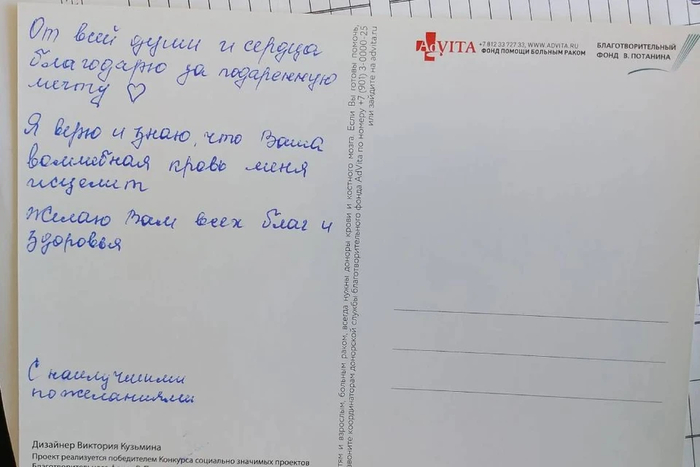 От всей души и сердца
благодарю за подаренную
мечту ♡
Я верю и знаю, что Ваша
волшебная кровь меня
исцелит
Желаю Вам всех благ и
здоровья
С наилучшими
пожеланиями
Дизайнер Виктория Кузьмина
Проект реализуется победителем Конкурса социально значимых проектов
тям и взрослым, больным раком, всегда нужны доноры крови и костного мозга. Если Вы готовы помочь
звоните координаторам донорской службы благотворительного фонда AdVita по номеру +7 (901) 3-0000-25
или зайдите на advita.ru
AdVITA
+7 812 33 727 33, WWW.ADVITA.RU
ФОНД ПОМОЩИ БОЛЬНЫМ РАКОМ
БЛАГОТВОРИТЕЛЬНЫЙ
ФОНД В. ПОТАНИНА